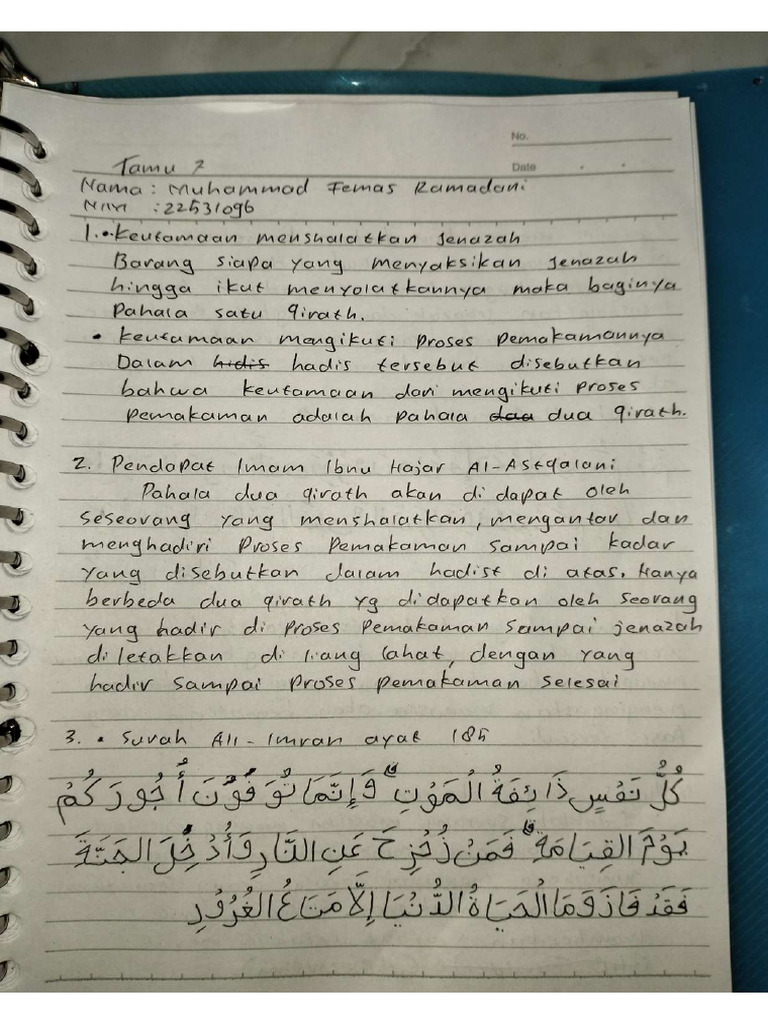 No.
Date
Tamu 7
Nama : Muhammad Femas Ramadani
NIM : 22531096
1. • Keutamaan menshalatkan Jenazah
Barang siapa yang menyaksikan Jenazah
hingga ikut menyolatkannya maka baginya
Pahala satu qirath.
• Keutamaan mengikuti Proses Pemakamannya
Dalam hidis hadis tersebut disebutkan
bahwa keutamaan dari mengikuti Proses
Pemakaman adalah Pahala daa dua qirath.
2. Pendapat Imam Ibnu Hajar Al-Astqalani
Pahala dua qirath akan di dapat oleh
seseorang yang menshalatkan, mengantar dan
menghadiri Proses Pemakaman Sampai kadar
yang disebutkan dalam hadist di atas. Hanya
berbeda dua qirath yg didapatkan oleh Seorang
yang hadir di Proses Pemakaman Sampai jenazah
diletakkan di liang lahat, dengan yang
hadir Sampai Proses Pemakaman Selesai
3. • Surah Ali-Imran ayat 185
كُلُّ نَفْسٍ ذَائِقَةُ الْمَوْتِ ۗ وَإِنَّمَا تُوَفَّوْنَ أُجُورَكُمْ
يَوْمَ الْقِيَامَةِ ۖ فَمَنْ زُحْزِحَ عَنِ النَّارِ وَأُدْخِلَ الْجَنَّةَ
فَقَدْ فَازَ وَمَا الْحَيَاةُ الدُّنْيَا إِلَّا مَتَاعُ الْغُرُورِ